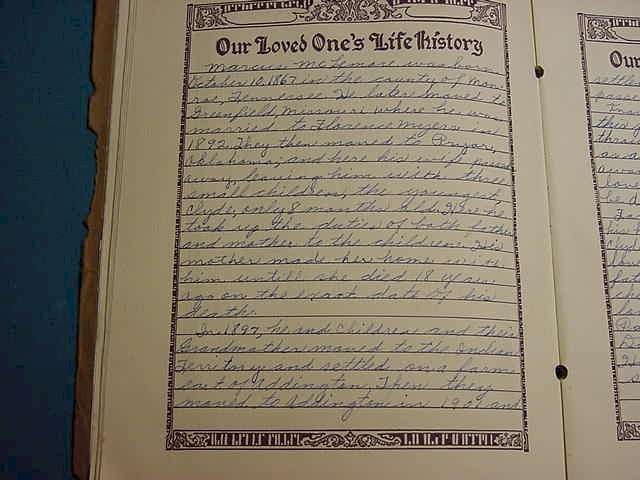 Our Loved One's Life History
Marcus McLemore was born
October 10, 1867 in the county of Mon
roe, Tennessee. He later moved to
Greenfield, Missouri where he was
married to Florence Meyers in
1892. They then moved to Pryor,
Oklahoma, and here his wife passed
away, leaving him with three
small children, the youngest,
Clyde, only 8 months old. Here he
took up the duties of both father
and mother to the children. His
mother made her home with
him untill she died 18 years
ago on the exact date of his
death.
In 1897, he and children and their
Grandmother moved to the Indian
Territory and settled on a farm
east of Addington. Then they
moved to Addington in 1901 and
Our
settle